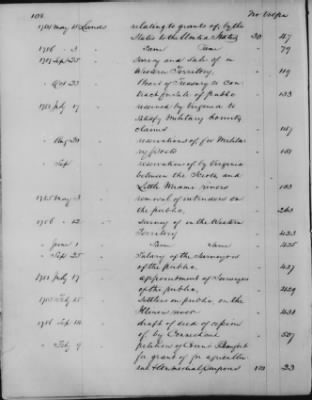 108. No. Vol. Pa
1784 May 28 Lands relating to grants of, by the
States to the United States 30 - 47
1786 " 3 " Same Same " - 79
1787 Apl 25 " Survey and Sale of in
Western Territory. " - 119
" Oct 23 " Board of Treasury to con
tract for sale of public " - 133
1788 July 17 " reserved by Virginia to
satisfy Military bounty
claims " - 147
" Aug 30 " reservations of, for Milita
" - 161
" Sep " reservation of by Virginia
between the Scioto and
Little Miami rivers " - 183
1785 May 3 " removal of intruders on
the public. " - 263
1786 " 12 " Survey of in the Western
Territory " - 423
" June 1 " Same Same " - 425
" Sep 25 " Salary of the Surveyors
of the public " - 427
1788 July 17 " appointment of Surveyor
of the public. " - 429
Settlers on public on the
" - 431
1786 Sep 14 " draft of deed of cession
of, by Connecticut " - 507
" Feby 9 " petition of
for grant of for agricultu
ral & Commercial purposes - 23